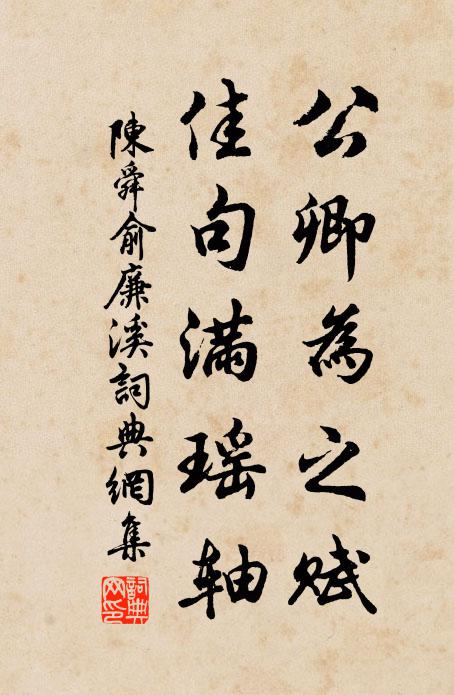 公卿為之賦
佳句满瑶軸
陳舜俞廉溪詞典網集
詞典网印